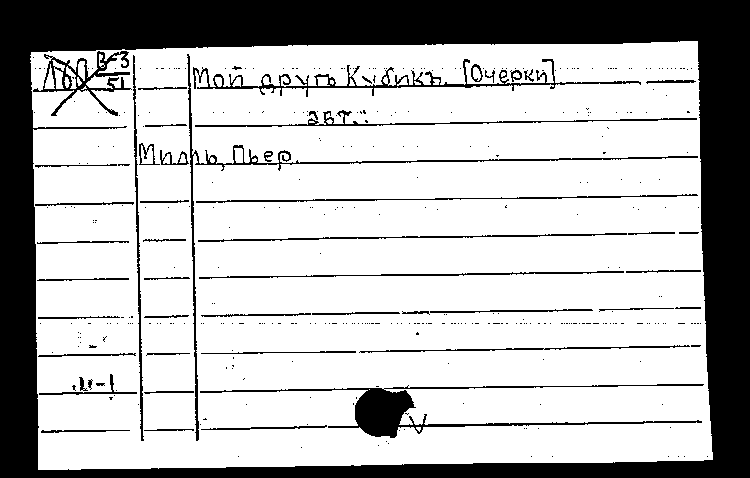 160 В-3
51
Мой другъ Кубикъ. [Очерки]
авт.:
Милль, Пьер.
V